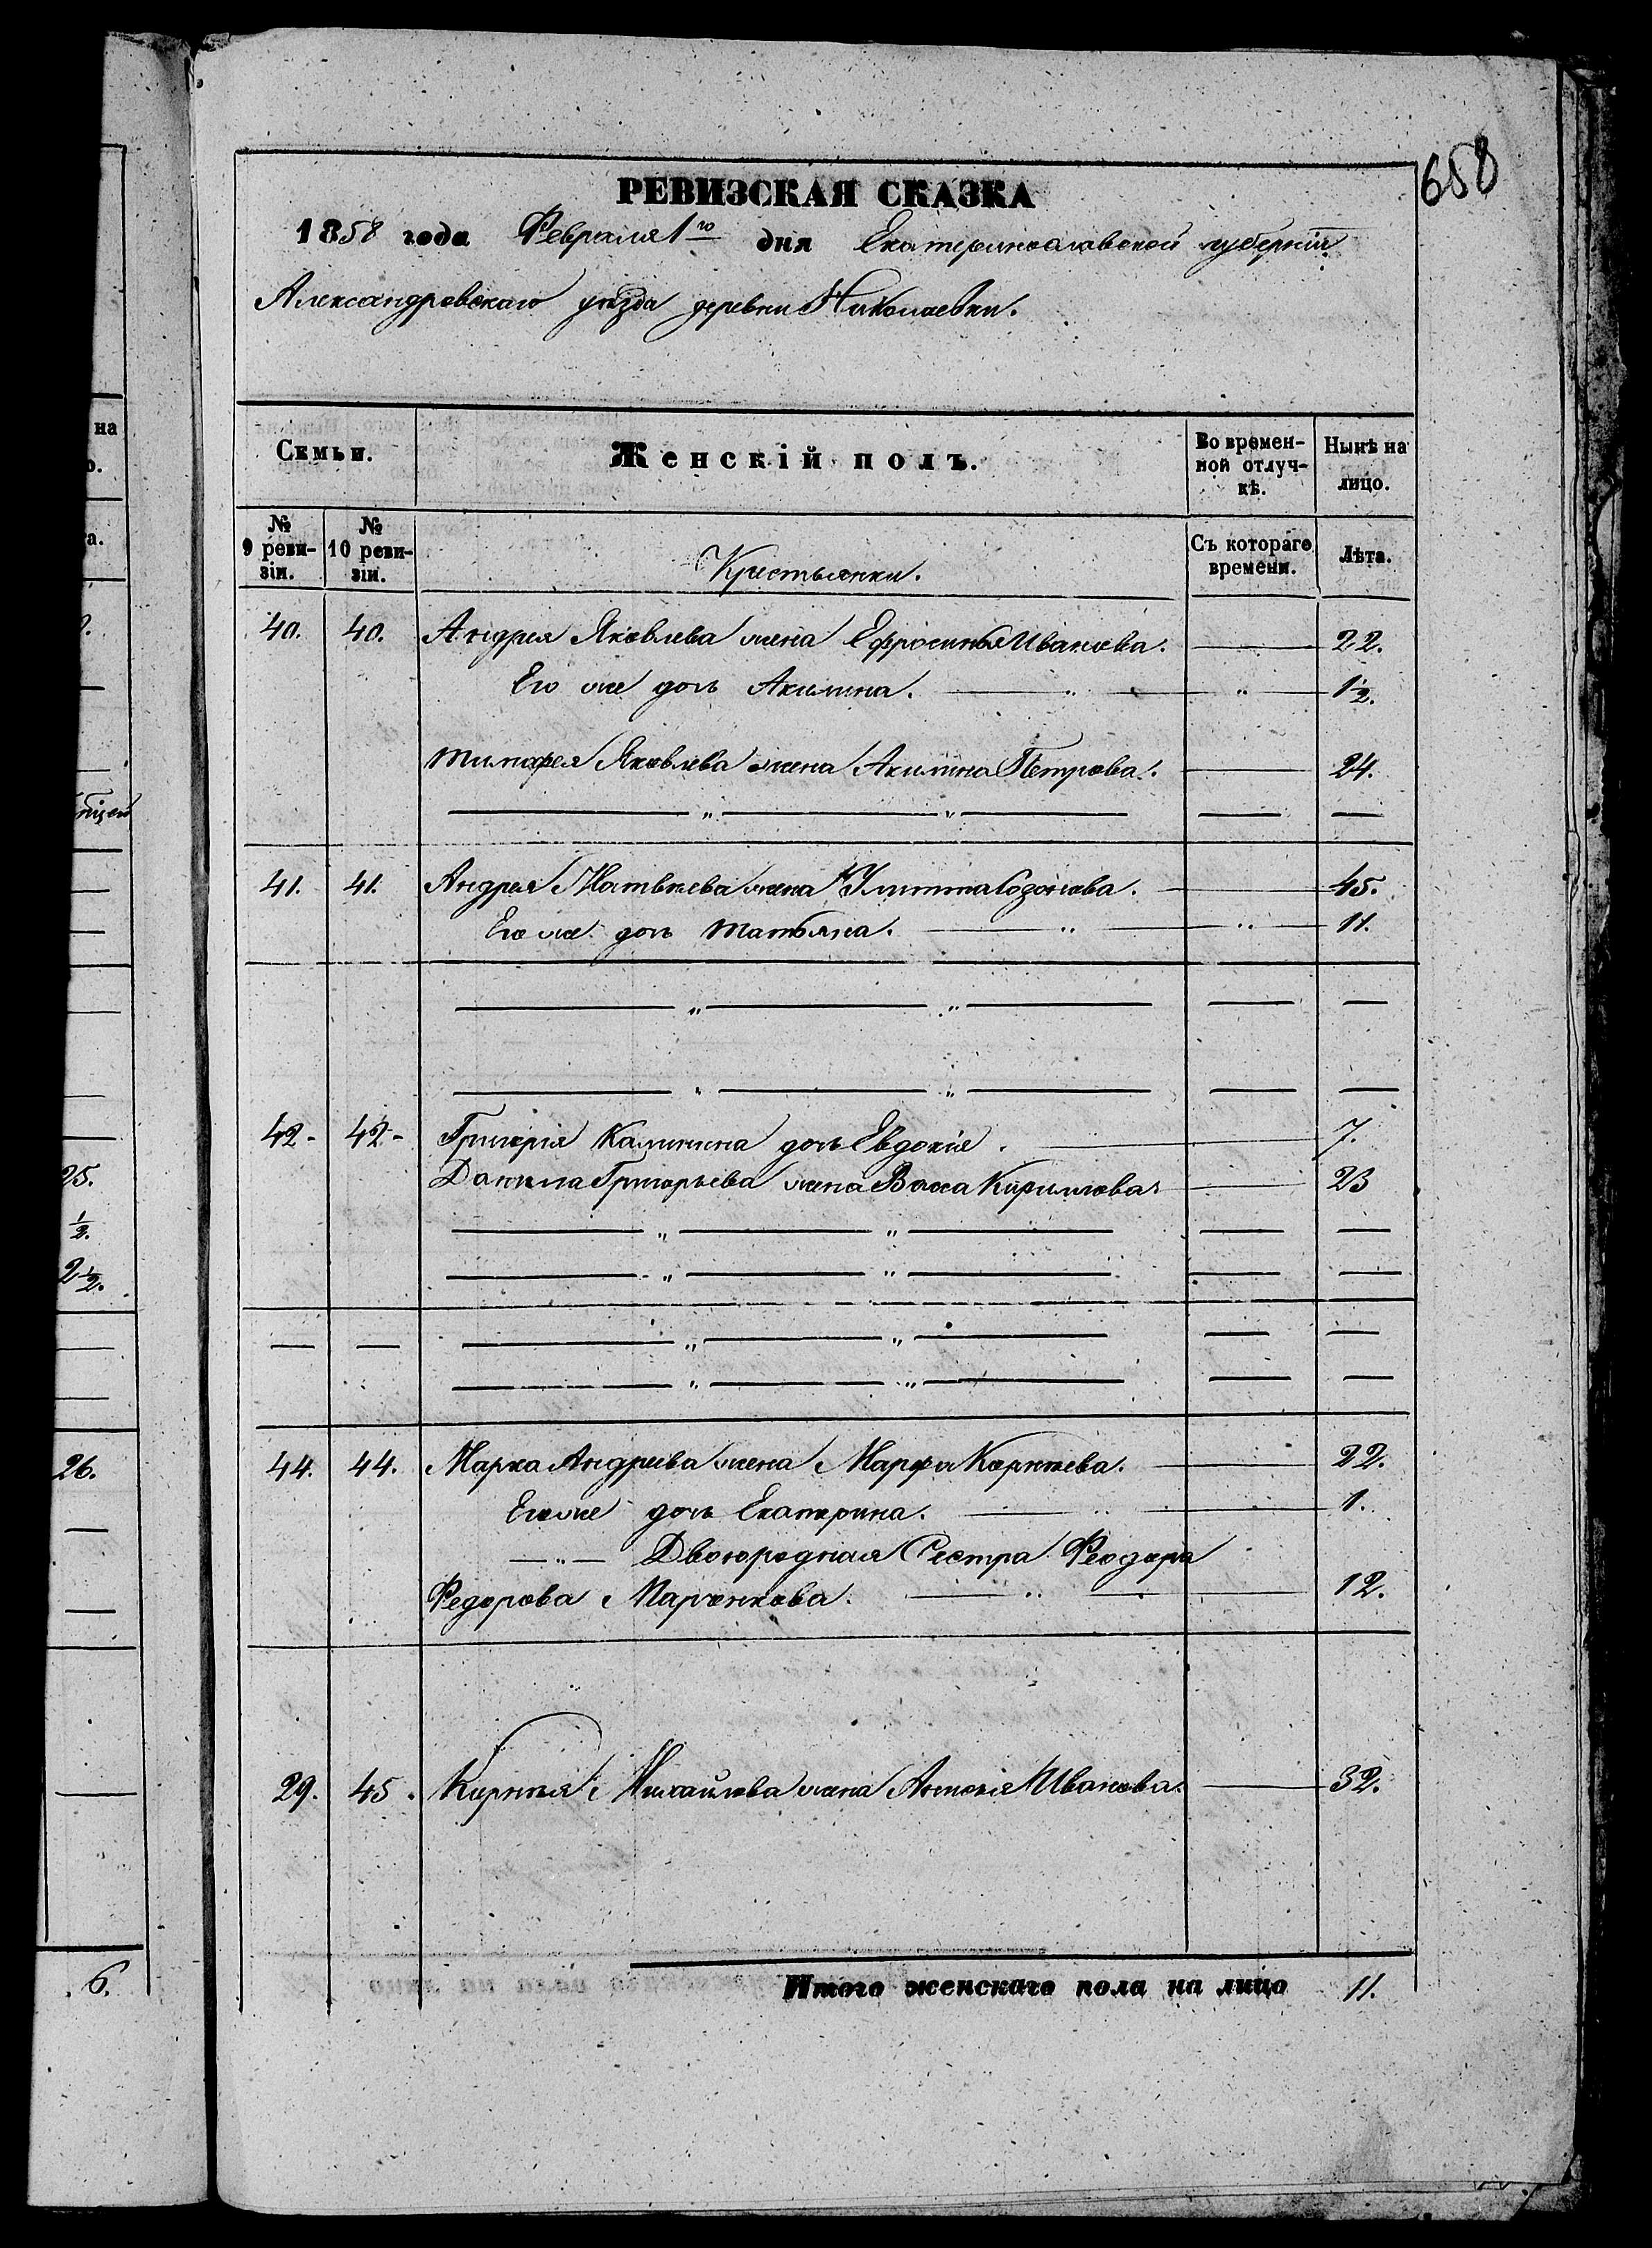 658
РЕВИЗСКАЯ СКАЗКА
1858 года Февраля 1го дня Екатеринославской губерніи
Александровскаго уѣзда деревни Николаевки.
Семьи. Женскій полъ. Во времен- Нынѣ на
ной отлуч- лицо.
кѣ.
№ № Съ котораго Лѣта.
9 реви- 10 реви- времени.
зіи. зіи. Крестьянки.
40. 40. Андрея Яковлева жена Ефросинья Иванова. 22.
Его же дочь Акилина. 1½.
Тимофея Яковлева жена Акилина Петрова. 24.
41. 41. Андрея Матвѣева жена Улитта Созонова. 45.
Его же дочь Татьяна. 11.
42- 42- Григорія Калинина дочь Евдокія. 7.
Данила Григорьева жена Васа Кирилова. 23
44. 44. Марка Андреева жена Марфа Корнѣева. 22.
Его же дочь Екатерина. 1.
Двоюродная Сестра Феодора
Федорова Марченкова. 12.
29. 45. Корнѣя Михайлова жена Иванова. 32.
Итого женскаго пола на лицо 11.
на
о.
а.
25.
½.
2½.
26.
6.